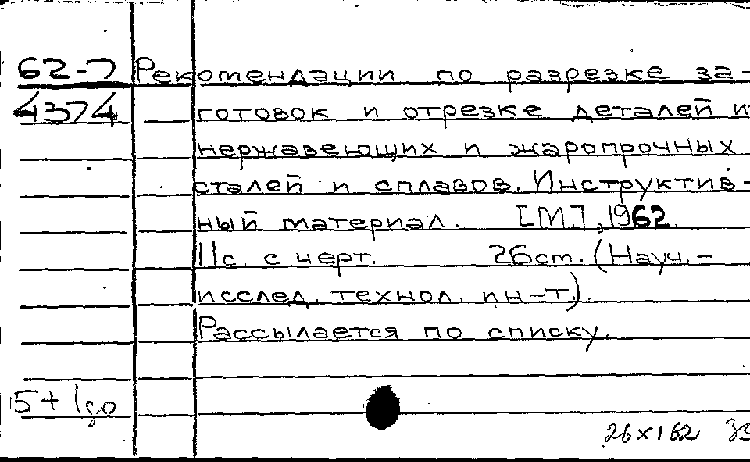 62-7 Рекомендации по разрезке за-
4374 готовок и отрезке деталей и
нержавеющих и жаропрочных
сталей и сплавов. Инструктив-
ный материал. [М.], 1962.
11с. с черт. 26см. (Науч.-
исслед. технол. ин-т.).
Рассылается по списку.
26х162